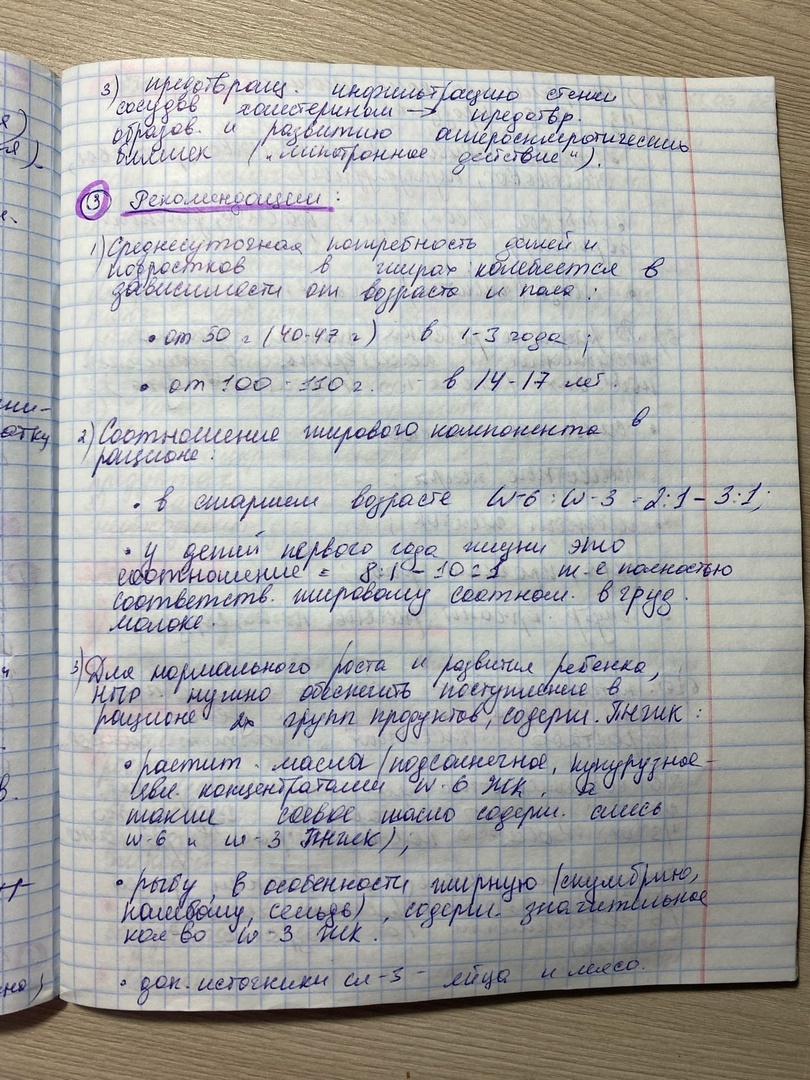 3) предотвращ. инфильтрацию стенки
сосудов холестерином → предотвр.
образов. и развитию атеросклеротических
бляшек ("монотронное действие").
③ Рекомендации:
1) Среднесуточная потребность детей и
подростков в жирах колеблется в
зависимости от возраста и пола:
• от 50 г (40-47 г) в 1-3 года;
• от 100-110 г. - в 14-17 лет.
2) Соотношение жирового компонента в
рационе:
• в старшем возрасте ω-6 : ω-3 = 2:1 – 3:1;
• у детей первого года жизни это
соотношение = 8:1 – 10:1 т.е полностью
соответств. жировому соотнош. в груд.
молоке.
3) Для нормального роста и развития ребенка,
НПР - нужно обеспечить поступление в
рационе 2х групп продуктов, содерж. ПНЖК:
• растит. масла (подсолнечное, кукурузное -
явл. концентратами ω-6 ЖК, а
также соевое масло содерж. смесь
ω-6 и ω-3 ПНЖК);
• рыбу, в особенности жирную (скумбрию,
палтус, сельдь), содерж. значительное
кол-во ω-3 ЖК.
• доп. источники ω-3 - яйца и мясо.